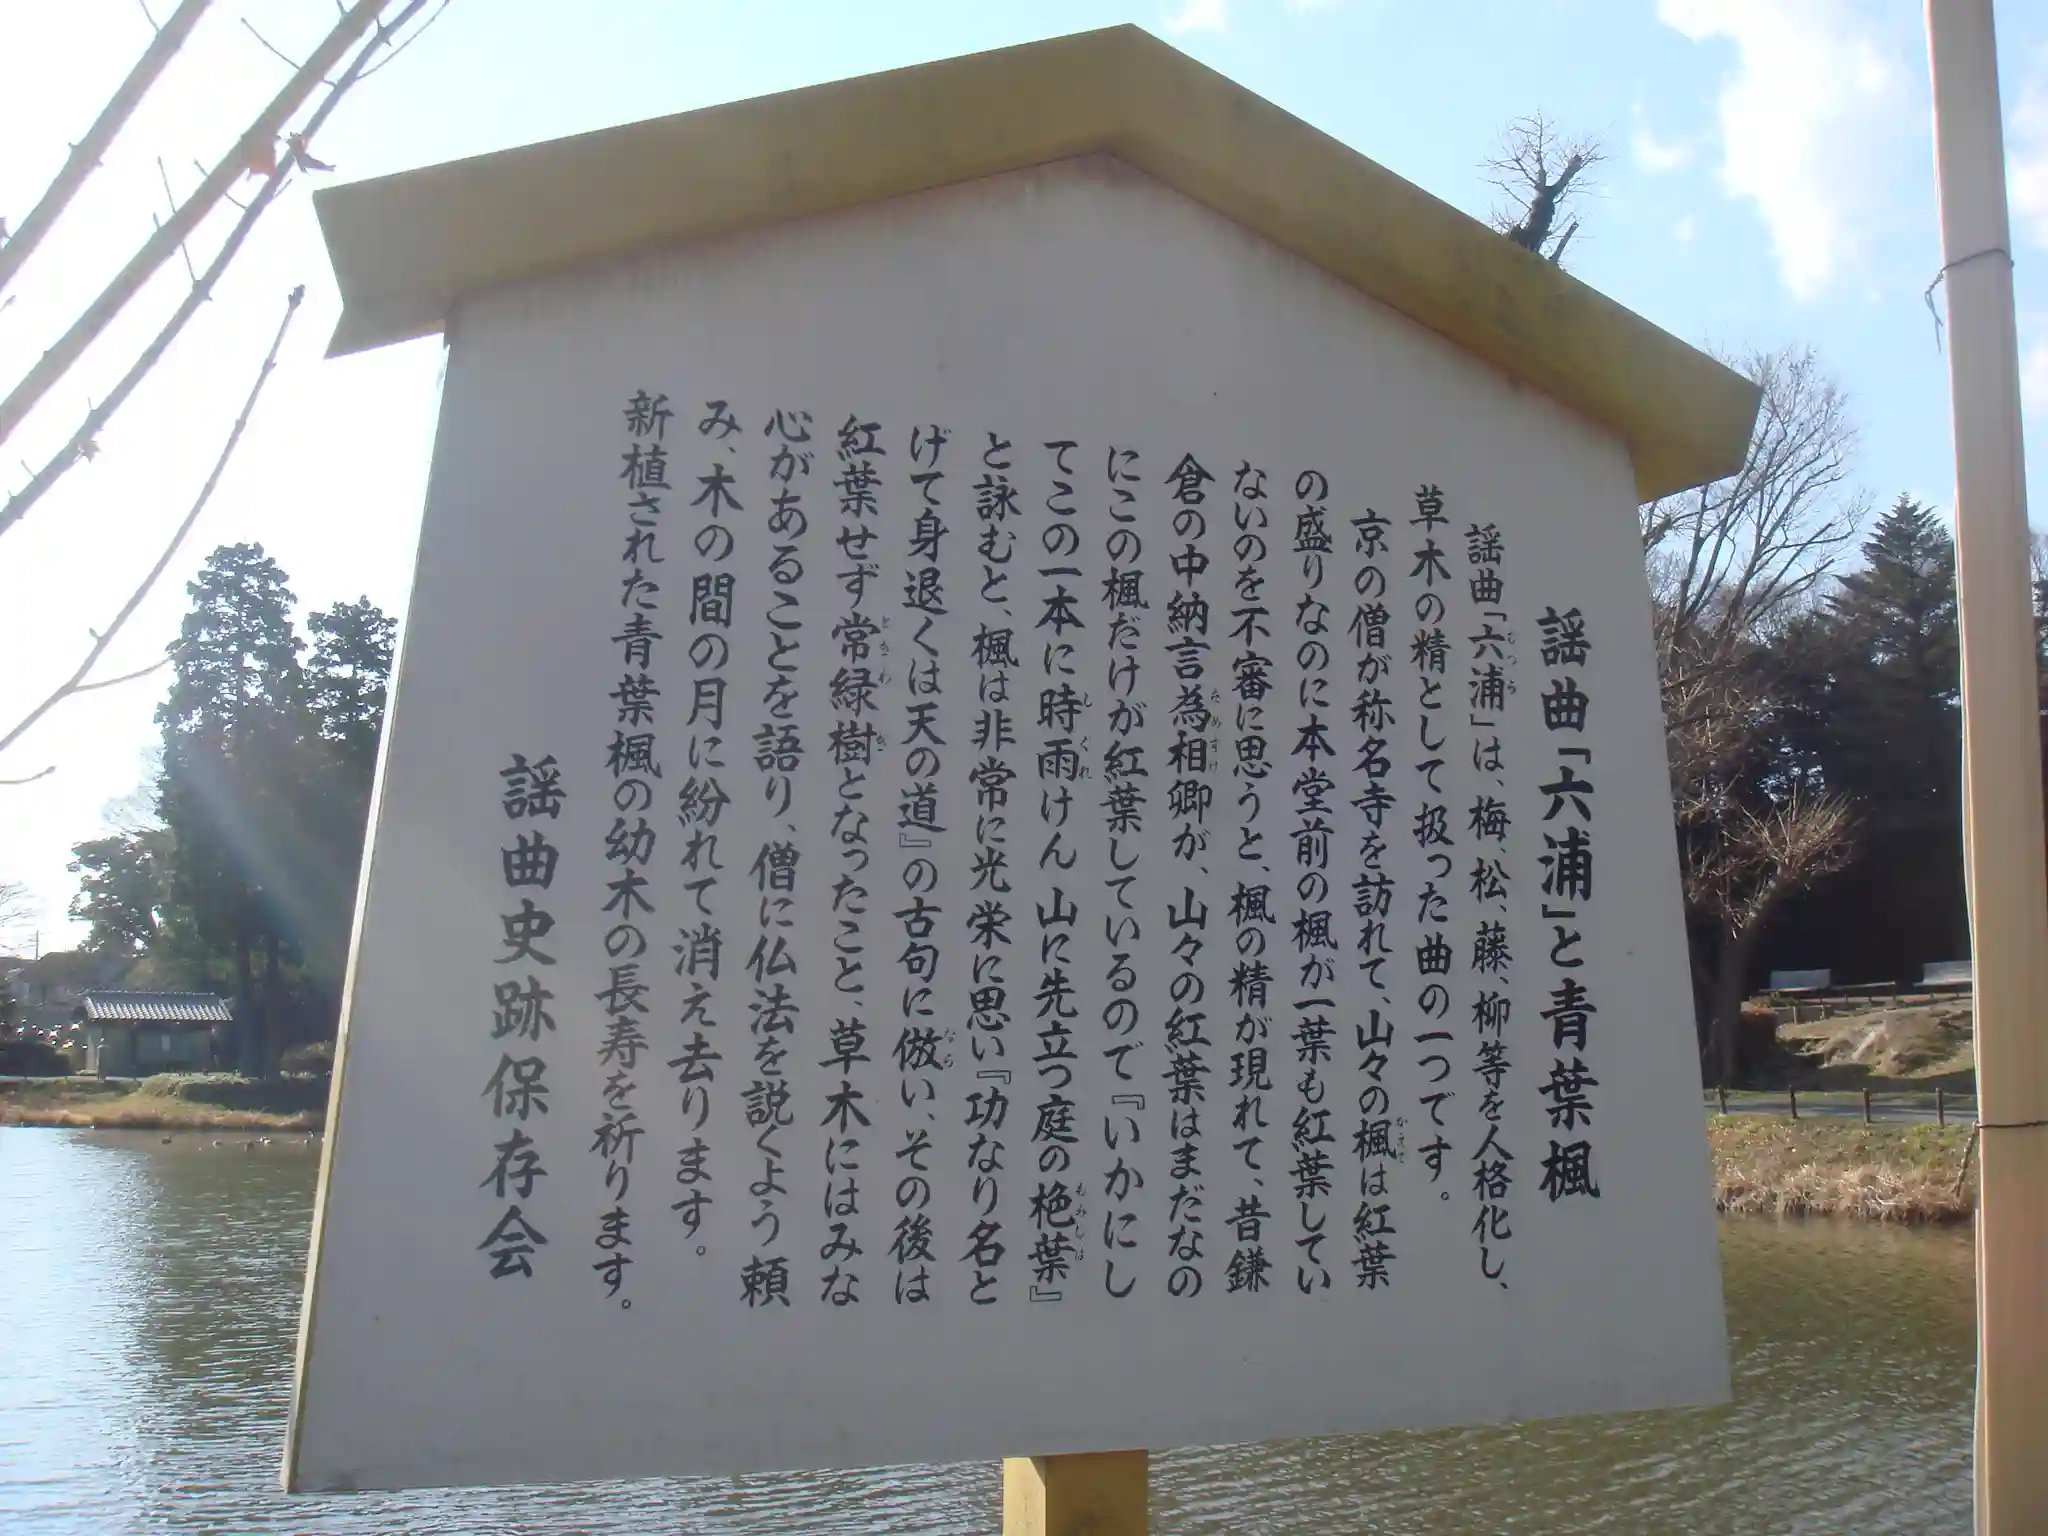 謡曲「六浦」と青葉楓
謡曲「六浦」は、梅、松、藤、柳等を人格化し、
草木の精として扱った曲の一つです。
京の僧が称名寺を訪れて、山々の楓は紅葉
の盛りなのに本堂前の楓が一葉も紅葉してい
ないのを不審に思うと、楓の精が現れて、昔鎌
倉の中納言為相卿が、山々の紅葉はまだなの
にこの楓だけが紅葉しているので『いかにし
てこの一本に時雨けん 山に先立つ庭の栬葉』
と詠むと、楓は非常に光栄に思い『功なり名と
げて身退くは天の道』の古句に倣い、その後は
紅葉せず常緑樹となったこと、草木にはみな
心があることを語り、僧に仏法を説くよう頼
み、木の間の月に紛れて消え去ります。
新植された青葉楓の幼木の長寿を祈ります。
謡曲史跡保存会